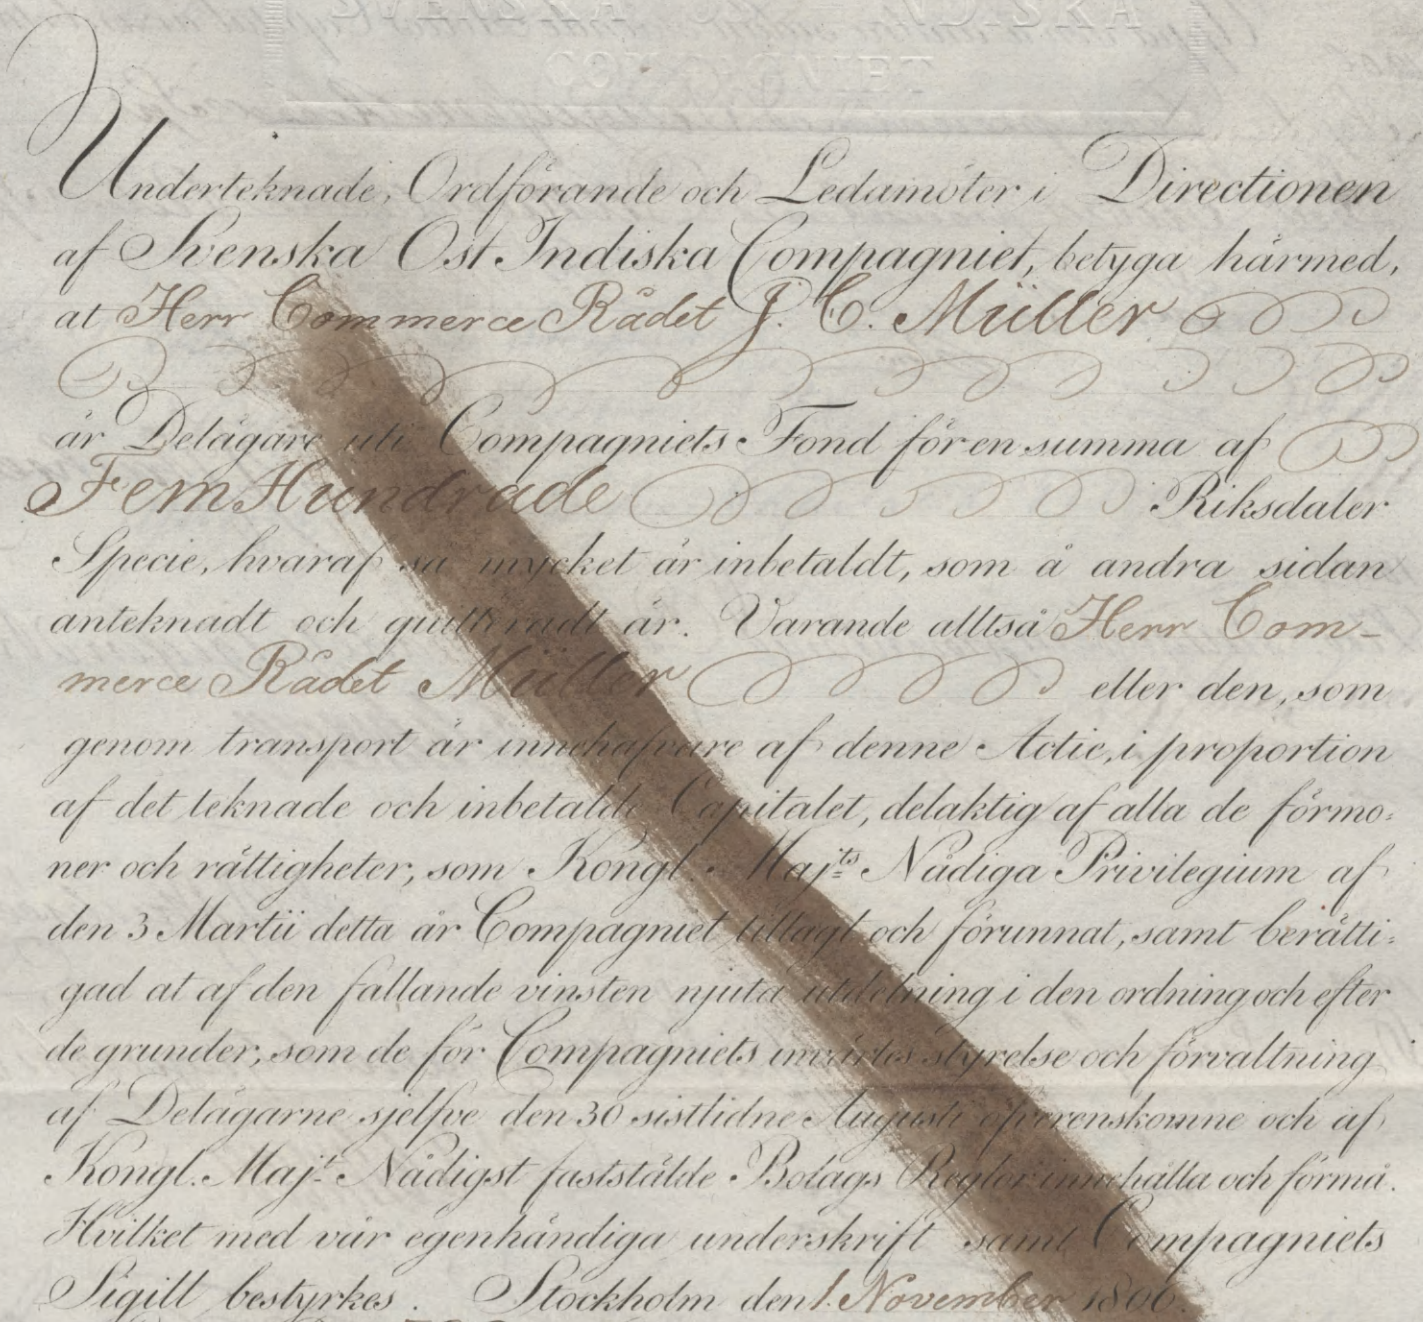 COMPAGNIET
Underteknade, Ordförande och Ledamöter i Directionen
af Svenska Ost Indiska Compagniet, betyga härmed,
at Herr Commerce Rådet J. C. Müller
är Delägare uti Compagniets Fond för en summa af
Fem Hundrade Riksdaler
Specie, hvaraf så mycket är inbetaldt, som å andra sidan
anteknadt och quitteradt är. Varande alltså Herr Com-
merce Rådet Müller eller den, som
genom transport är innehafvare af denne Actie, i proportion
af det teknade och inbetaldt Capitalet, delaktig af alla de förmo:
ner och rättigheter, som Kongl. Maj:ts Nådiga Privilegium af
den 3 Martii detta år Compagniet tillagt och förunnat, samt berätti:
gad at af den fallande vinsten njuta utdelning i den ordning och efter
de grunder, som de för Compagniets invärtes styrelse och förvaltning
af Delägarne sjelfve den 30 sistlidne Augusti öfverenskomne och af
Kongl. Maj:t Nådigst faststälde Bolags Reglor innehålla och förmå.
Hvilket med vår egenhändiga underskrift samt Compagniets
Sigill bestyrkes. Stockholm den 1. November 1806.